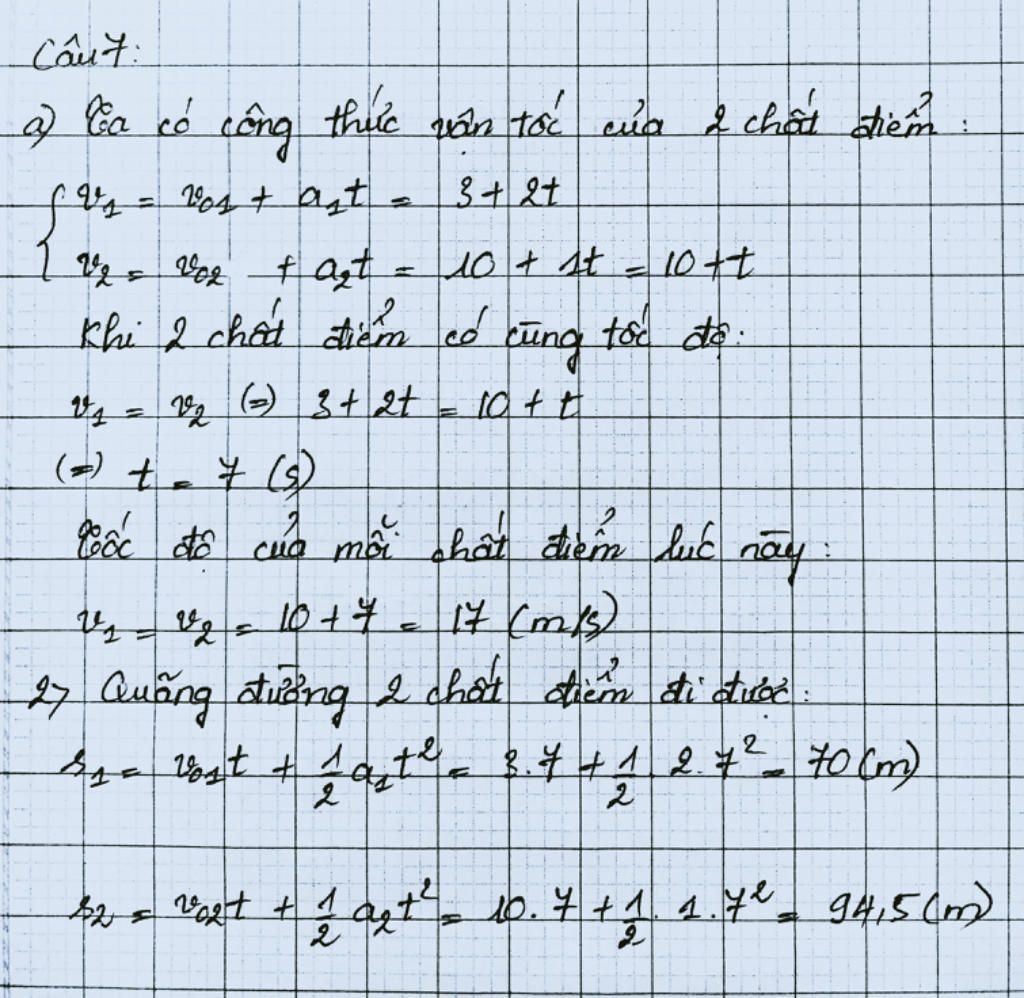 Câu 7:
a) Ta có công thức vận tốc của 2 chất điểm :
v₁ = v₀₁ + a₁t = 3 + 2t
v₂ = v₀₂ + a₂t = 10 + 1t = 10 + t
Khi 2 chất điểm có cùng tốc độ:
v₁ = v₂ (=) 3 + 2t = 10 + t
(=) t = 7 (s)
Tốc độ của mỗi chất điểm lúc này :
v₁ = v₂ = 10 + 7 = 17 (m/s)
2) Quãng đường 2 chất điểm đi được :
s₁ = v₀₁t + 1/2 a₁t² = 3.7 + 1/2 . 2.7² = 70 (m)
s₂ = v₀₂t + 1/2 a₂t² = 10.7 + 1/2 . 1.7² = 94,5 (m)